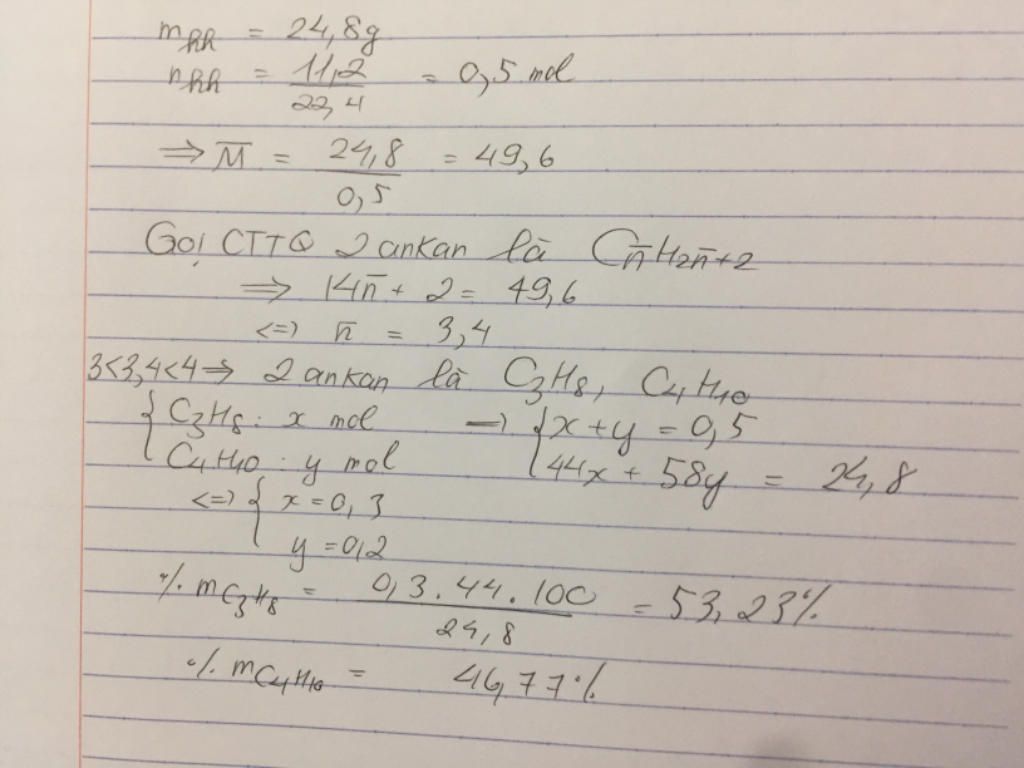 mhh = 24,8g
nhh = 11,2/22,4 = 0,5 mol
⇒ M̄ = 24,8/0,5 = 49,6
Gọi CTTQ 2 ankan là Cn̄H2n̄+2
⇒ 14n̄ + 2 = 49,6
<=> n̄ = 3,4
3<3,4<4 ⇒ 2 ankan là C3H8, C4H10
{ C3H8 : x mol → { x + y = 0,5
C4H10 : y mol 44x + 58y = 24,8
<=> { x = 0,3
y = 0,2
% mC3H8 = 0,3.44.100/24,8 = 53,23%
% mC4H10 = 46,77%